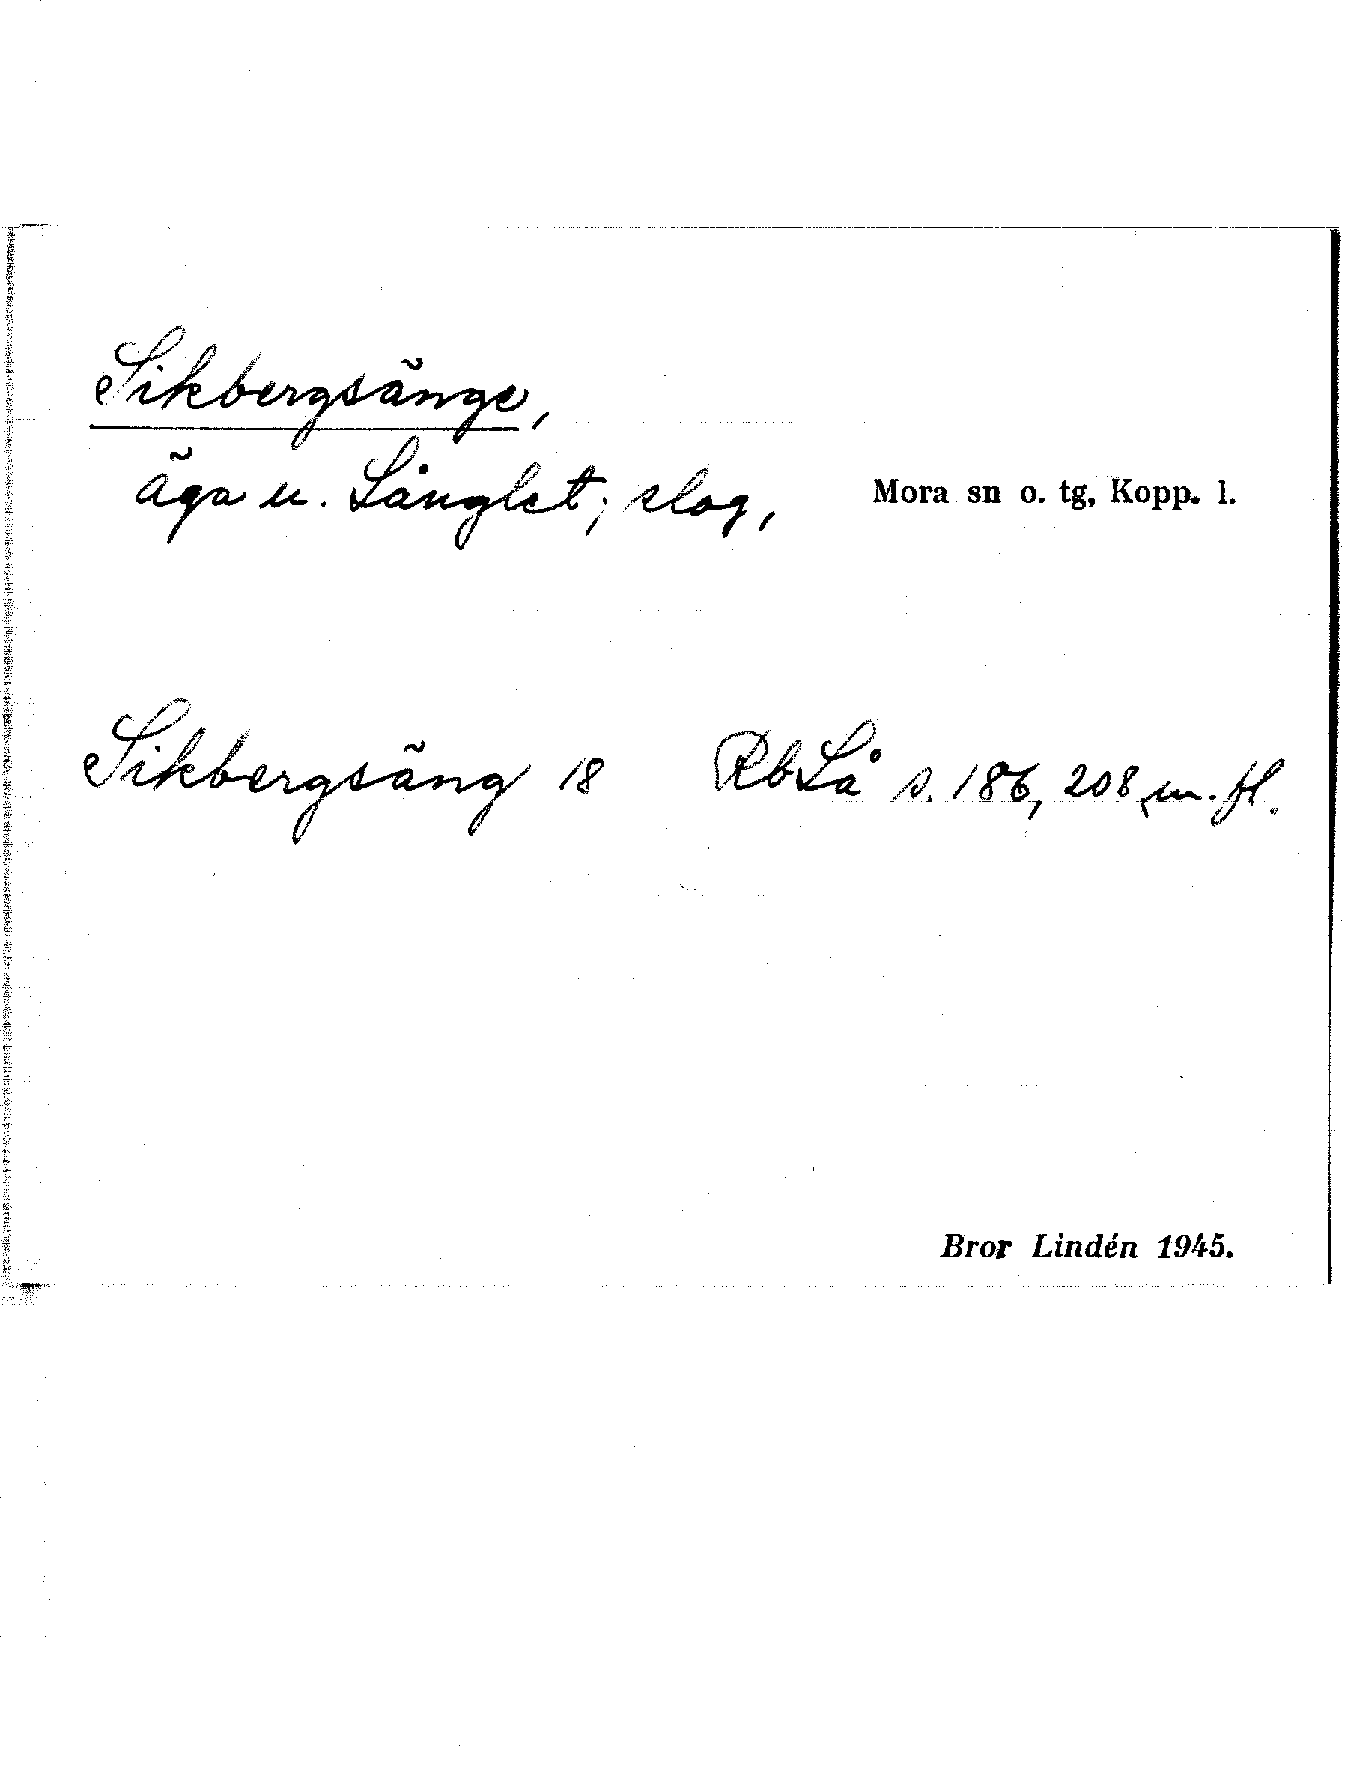 Sikbergsänge,
äga u. Långlet; slog,
Mora sn o. tg, Kopp. l.
Sikbergsäng 18 RbLå s. 186, 208 m. fl.
Bror Lindén 1945.